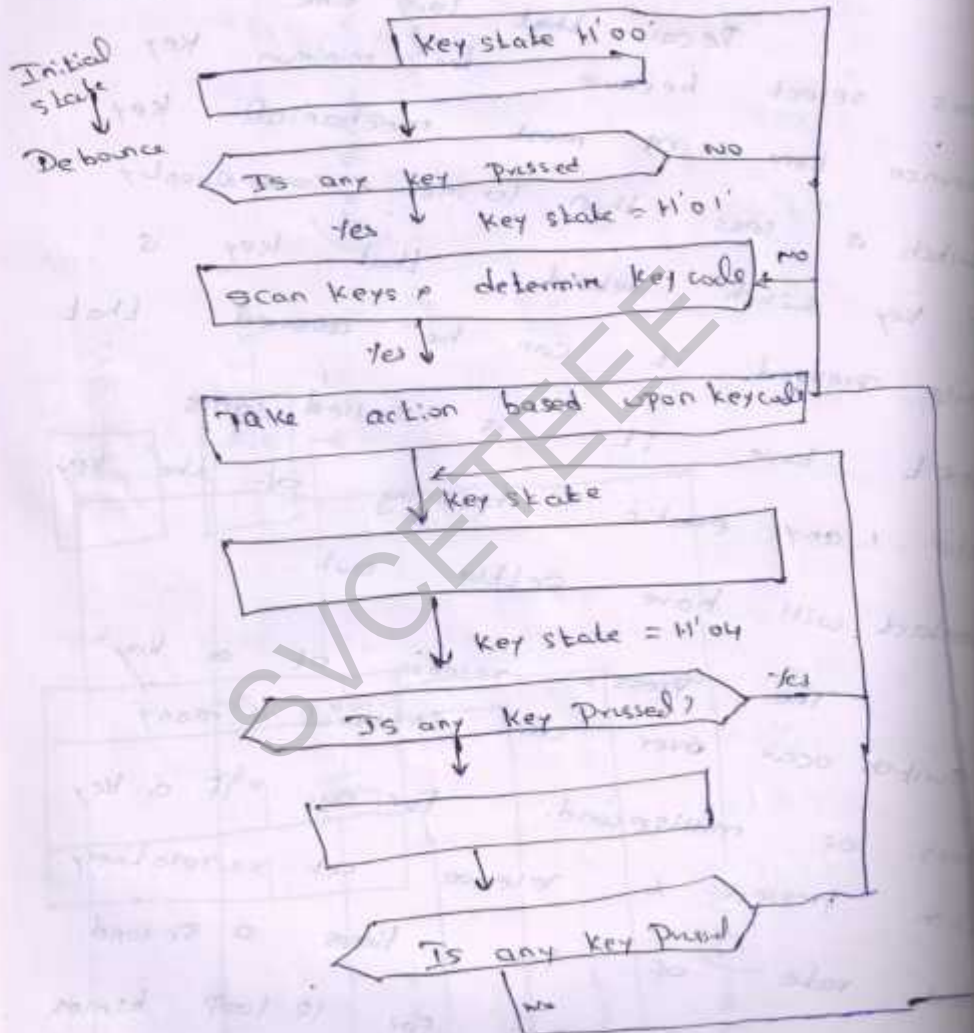 Key state H'00'
Initial
state
Debounce
Is any key Pressed
NO
Yes
Key state = H'01'
NO
Scan Keys & determine Key code
Yes
Take action based upon keycode
Key state
Key state = H'04
Is any Key Pressed?
Yes
Is any Key Pressed
No
SVCETEEE